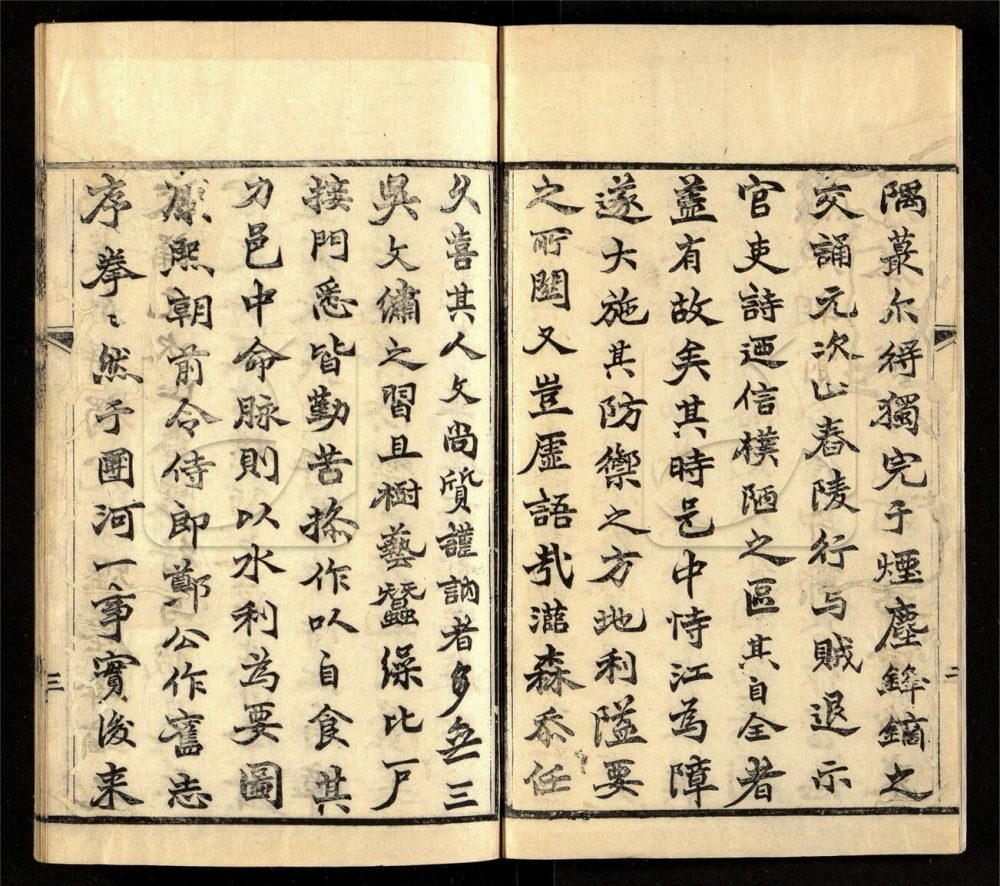 隅蕞尔得獨完于煙塵鋒鏑之
交誦元次山舂陵行与賊退示
官吏詩迺信樸陋之區其自全者
蓋有故矣其時邑中恃江為障
遂大施其防禦之方地利隘要
之所關又豈虛語哉澔森忝任
二
久喜其人文尚质謹訥者多無三
吳文繡之習且樹藝蠶繰比戸
接門悉皆勤苦操作以自食其
力邑中命脉則以水利為要圖
康熙朝前令侍郎鄭公作舊志
序拳〻然于圑河一事實後来
三